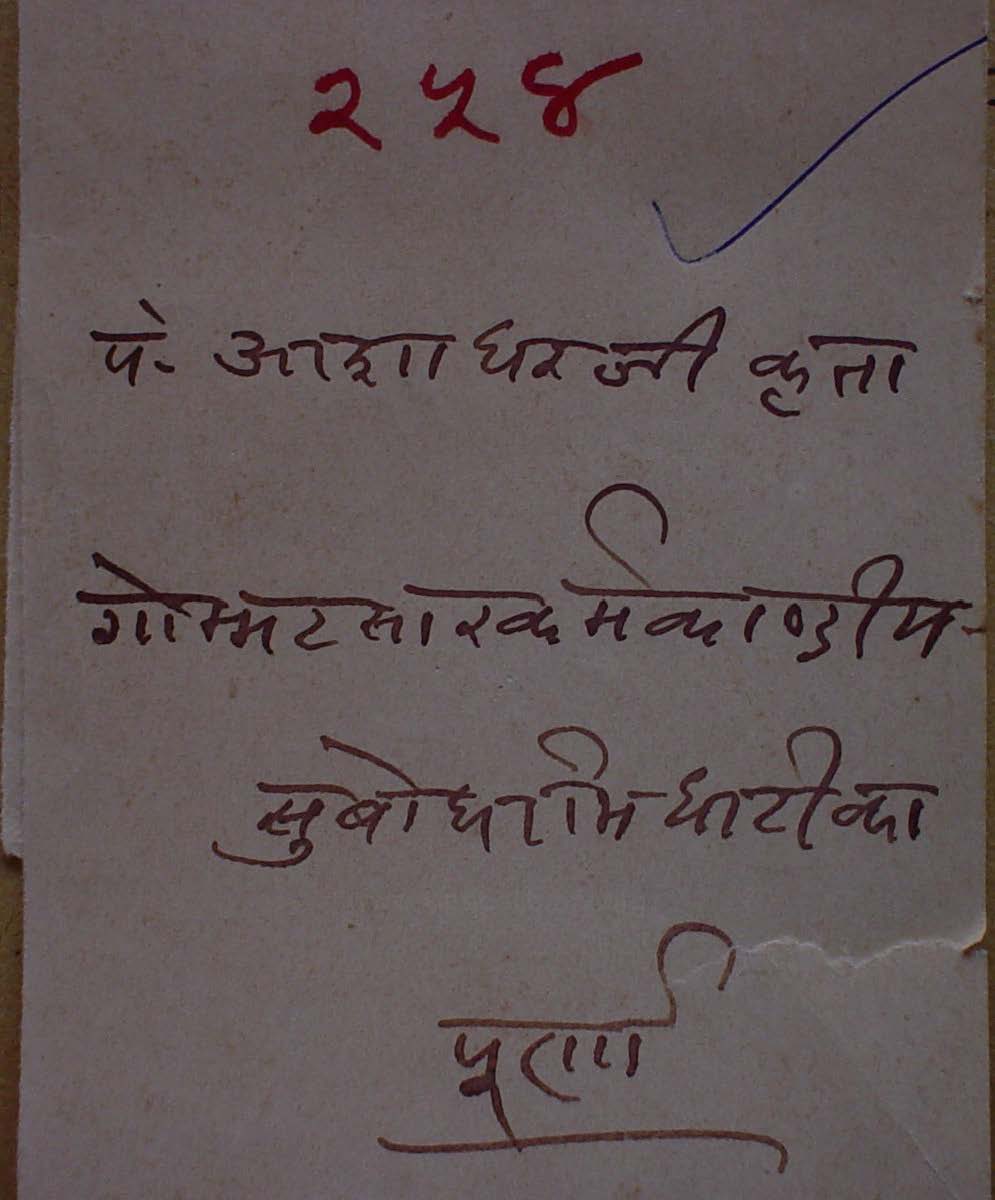 २५४
पं. आशाधरजी कृता
गोम्मटसारकर्मकाण्डीय-
सुबोधाभिधाटीका
पूर्ण